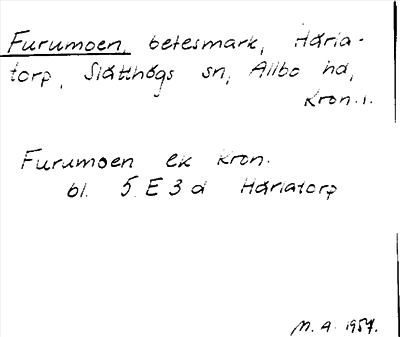 Furumoen, betesmark, Häria-
torp, Slätthögs sn, Allbo hd,
Kron. l.
Furumoen ek Kron.
bl. 5 E 3 d Häriatorp
M. A. 1957.